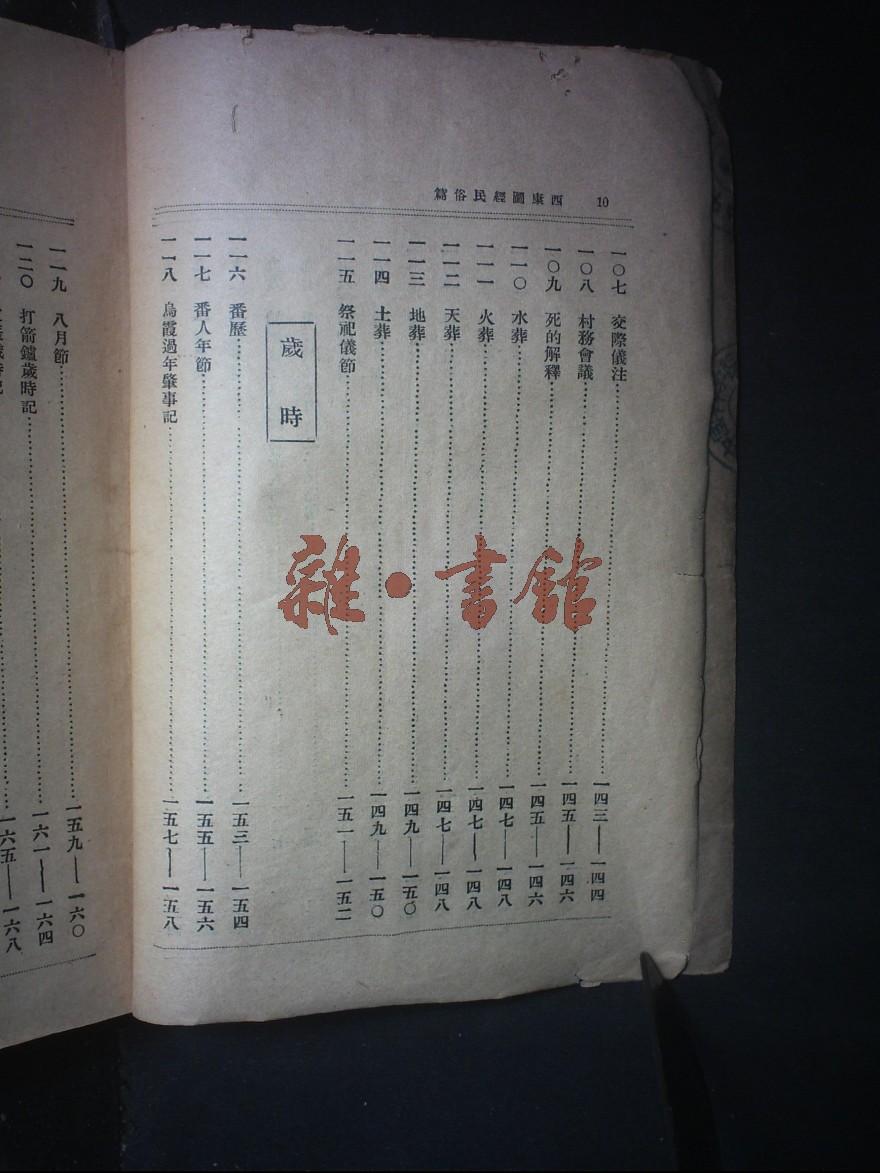 西康圖經民俗篇 10
一〇七 交際儀注……一四三——一四四
一〇八 村務會議……一四五——一四六
一〇九 死的解釋……一四五——一四六
一一〇 水葬……一四七——一四八
一一一 火葬……一四七——一四八
一一二 天葬……一四七——一四八
一一三 地葬……一四九——一五〇
一一四 土葬……一四九——一五〇
一一五 祭祀儀節……一五一——一五二
歲時
一一六 番歷……一五三——一五四
一一七 番人年節……一五五——一五六
一一八 烏霞過年肇事記……一五七——一五八
一一九 八月節……一五九——一六〇
一二〇 打箭鑪歲時記……一六一——一六四
一六五——一六八
雜·書館